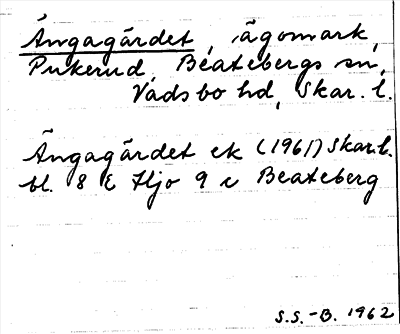 Ängagärdet, ägomark,
Pukerud, Beatebergs sn,
Vadsbo hd, Skar. l.
Ängagärdet ek (1961) Skar. l.
bl. 8 E Hjo 9 c Beateberg
S.S. -B. 1962